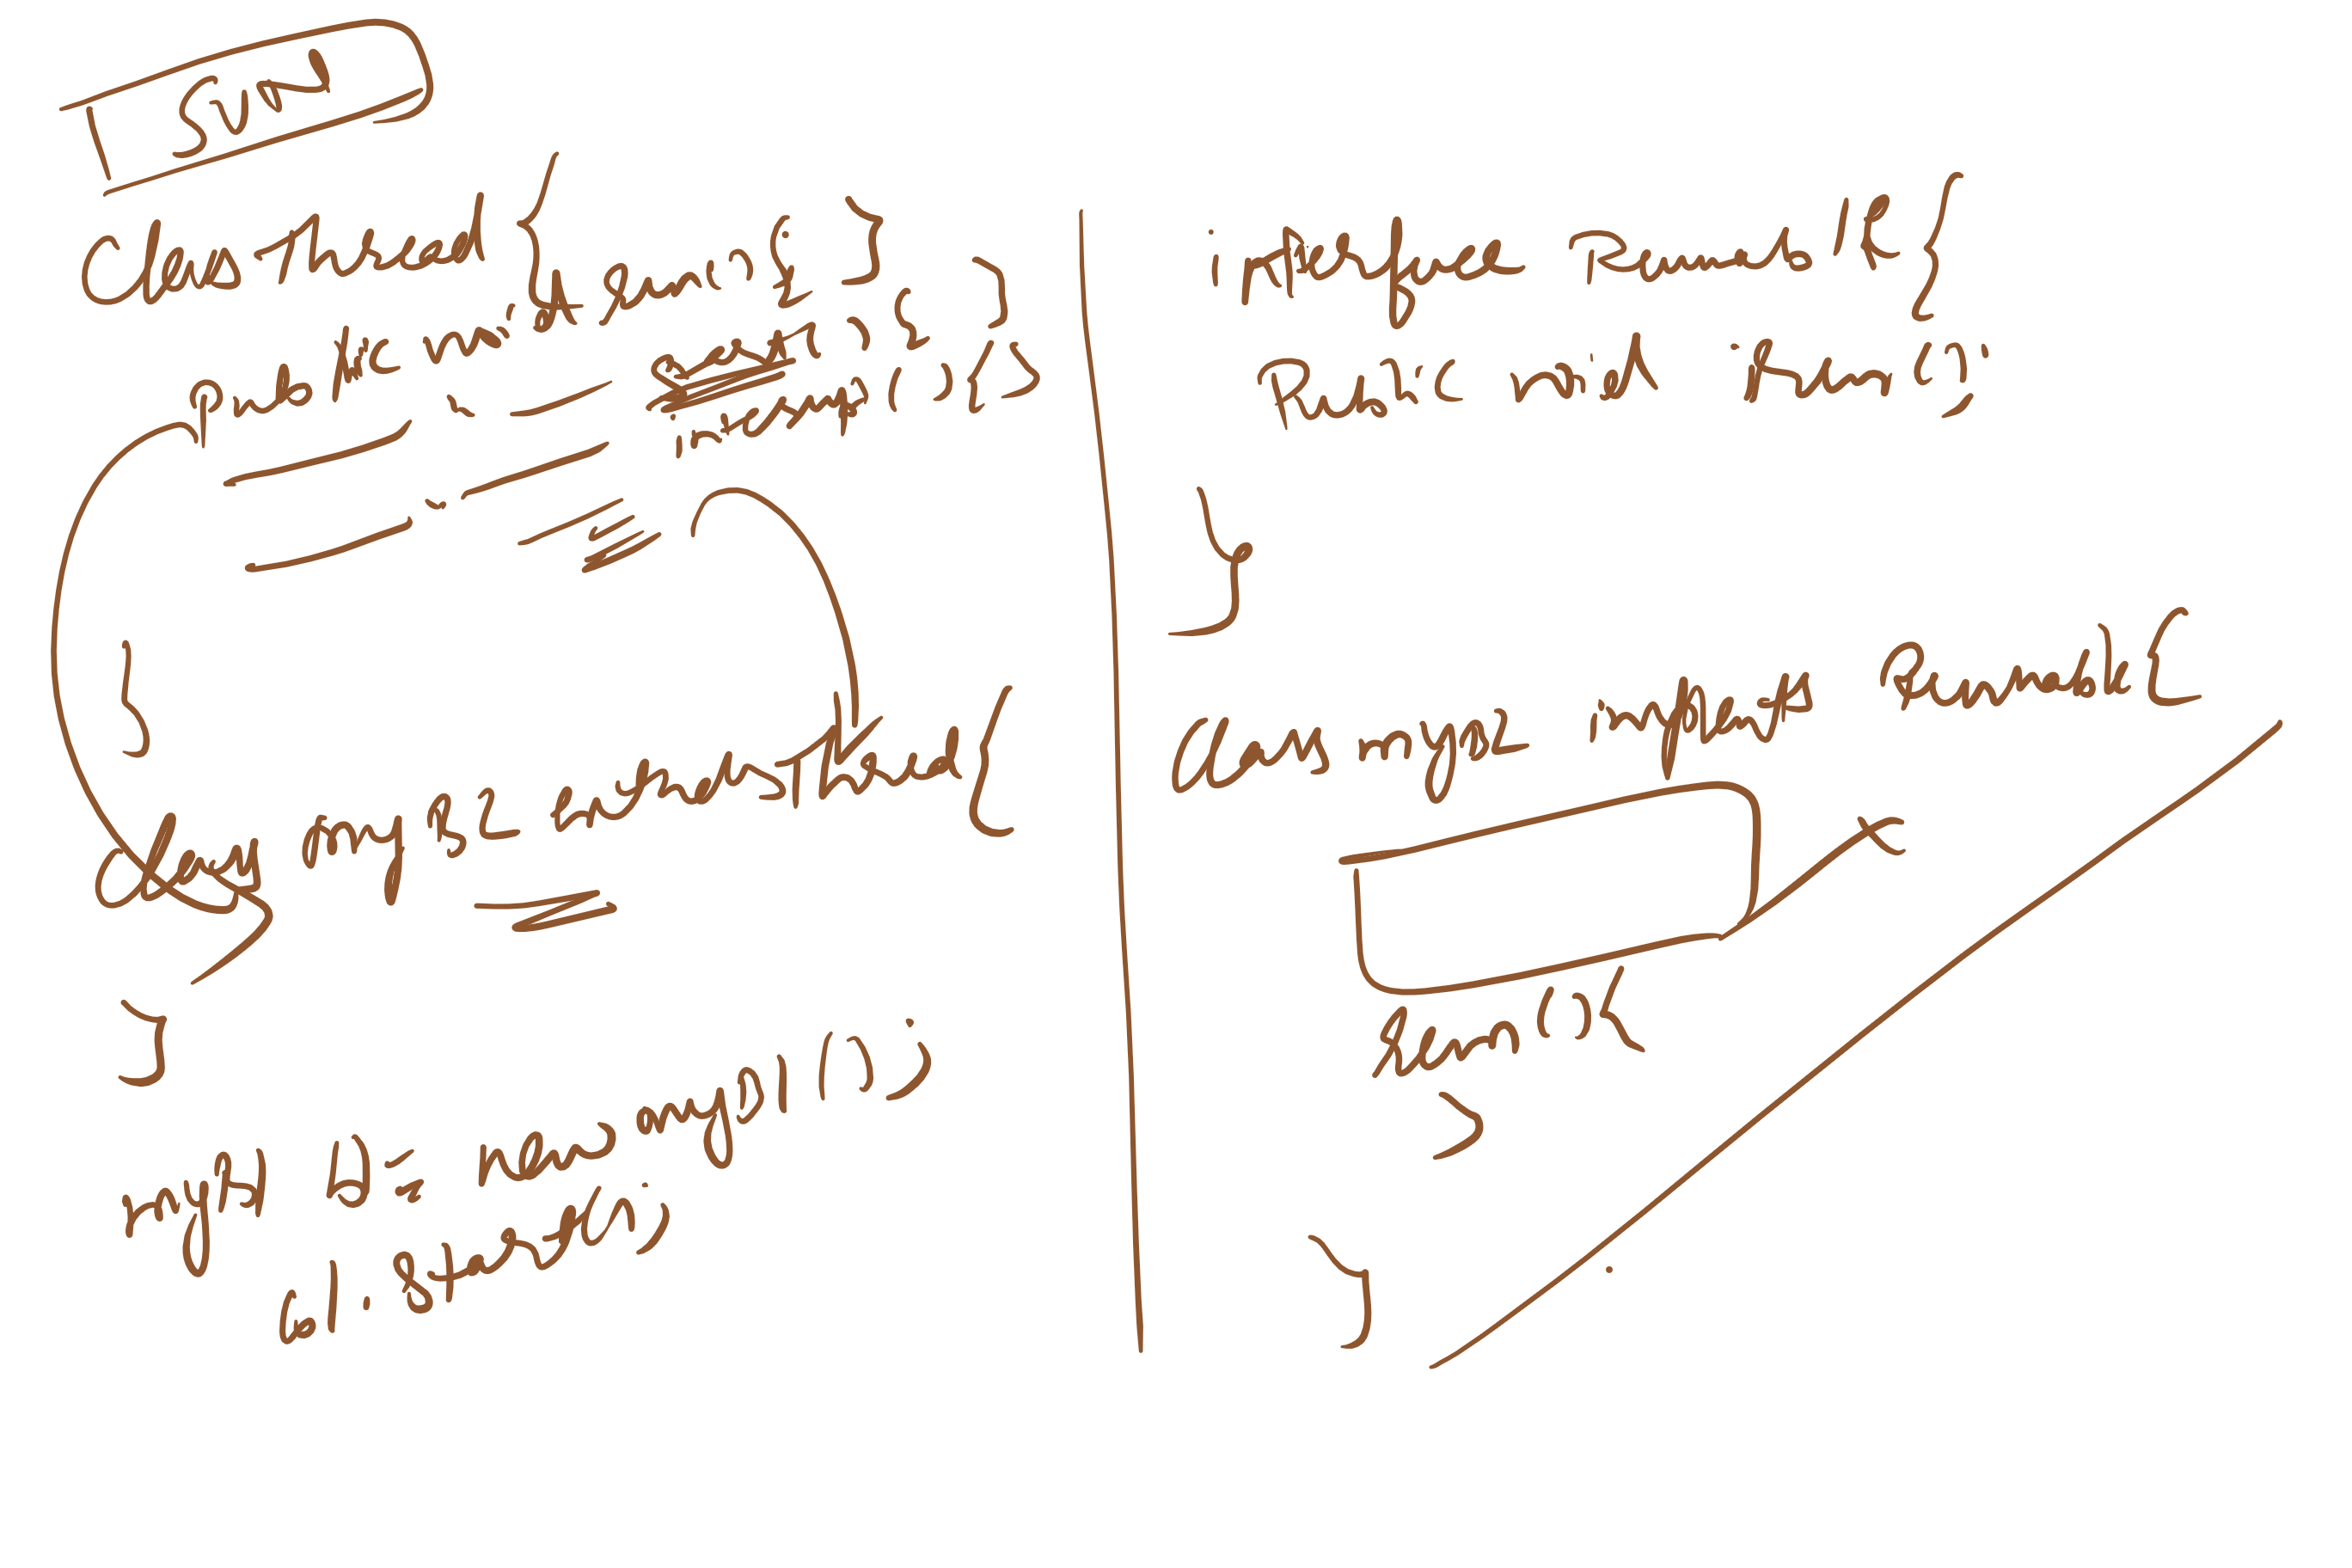 SUN
class Thread {
void run() { }
public void start() { }
interrupt() { }
}
class myP2 extends Thread {
}
myP1 b1 = new myP1();
b1.start();
interface Runnable {
Public void run();
}
class myP2 implements Runnable {
run() {
}
}